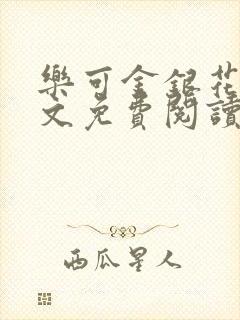 樂可金銀花
文免費閱讀
西瓜星人